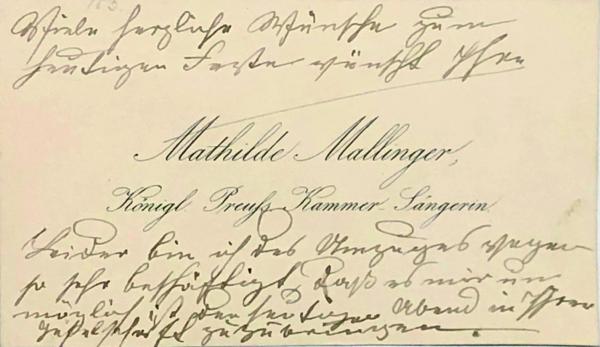 Viele herzliche Wünsche zum
heutigen Feste wünscht Ihnen
Mathilde Mallinger,
Königl. Preuss. Kammer Sängerin.
Leider bin ich des Umzuges wegen
so sehr beschäftigt, daß es mir un
möglich ist den heutigen Abend in Ihrer
Gesellschaft zuzubringen.